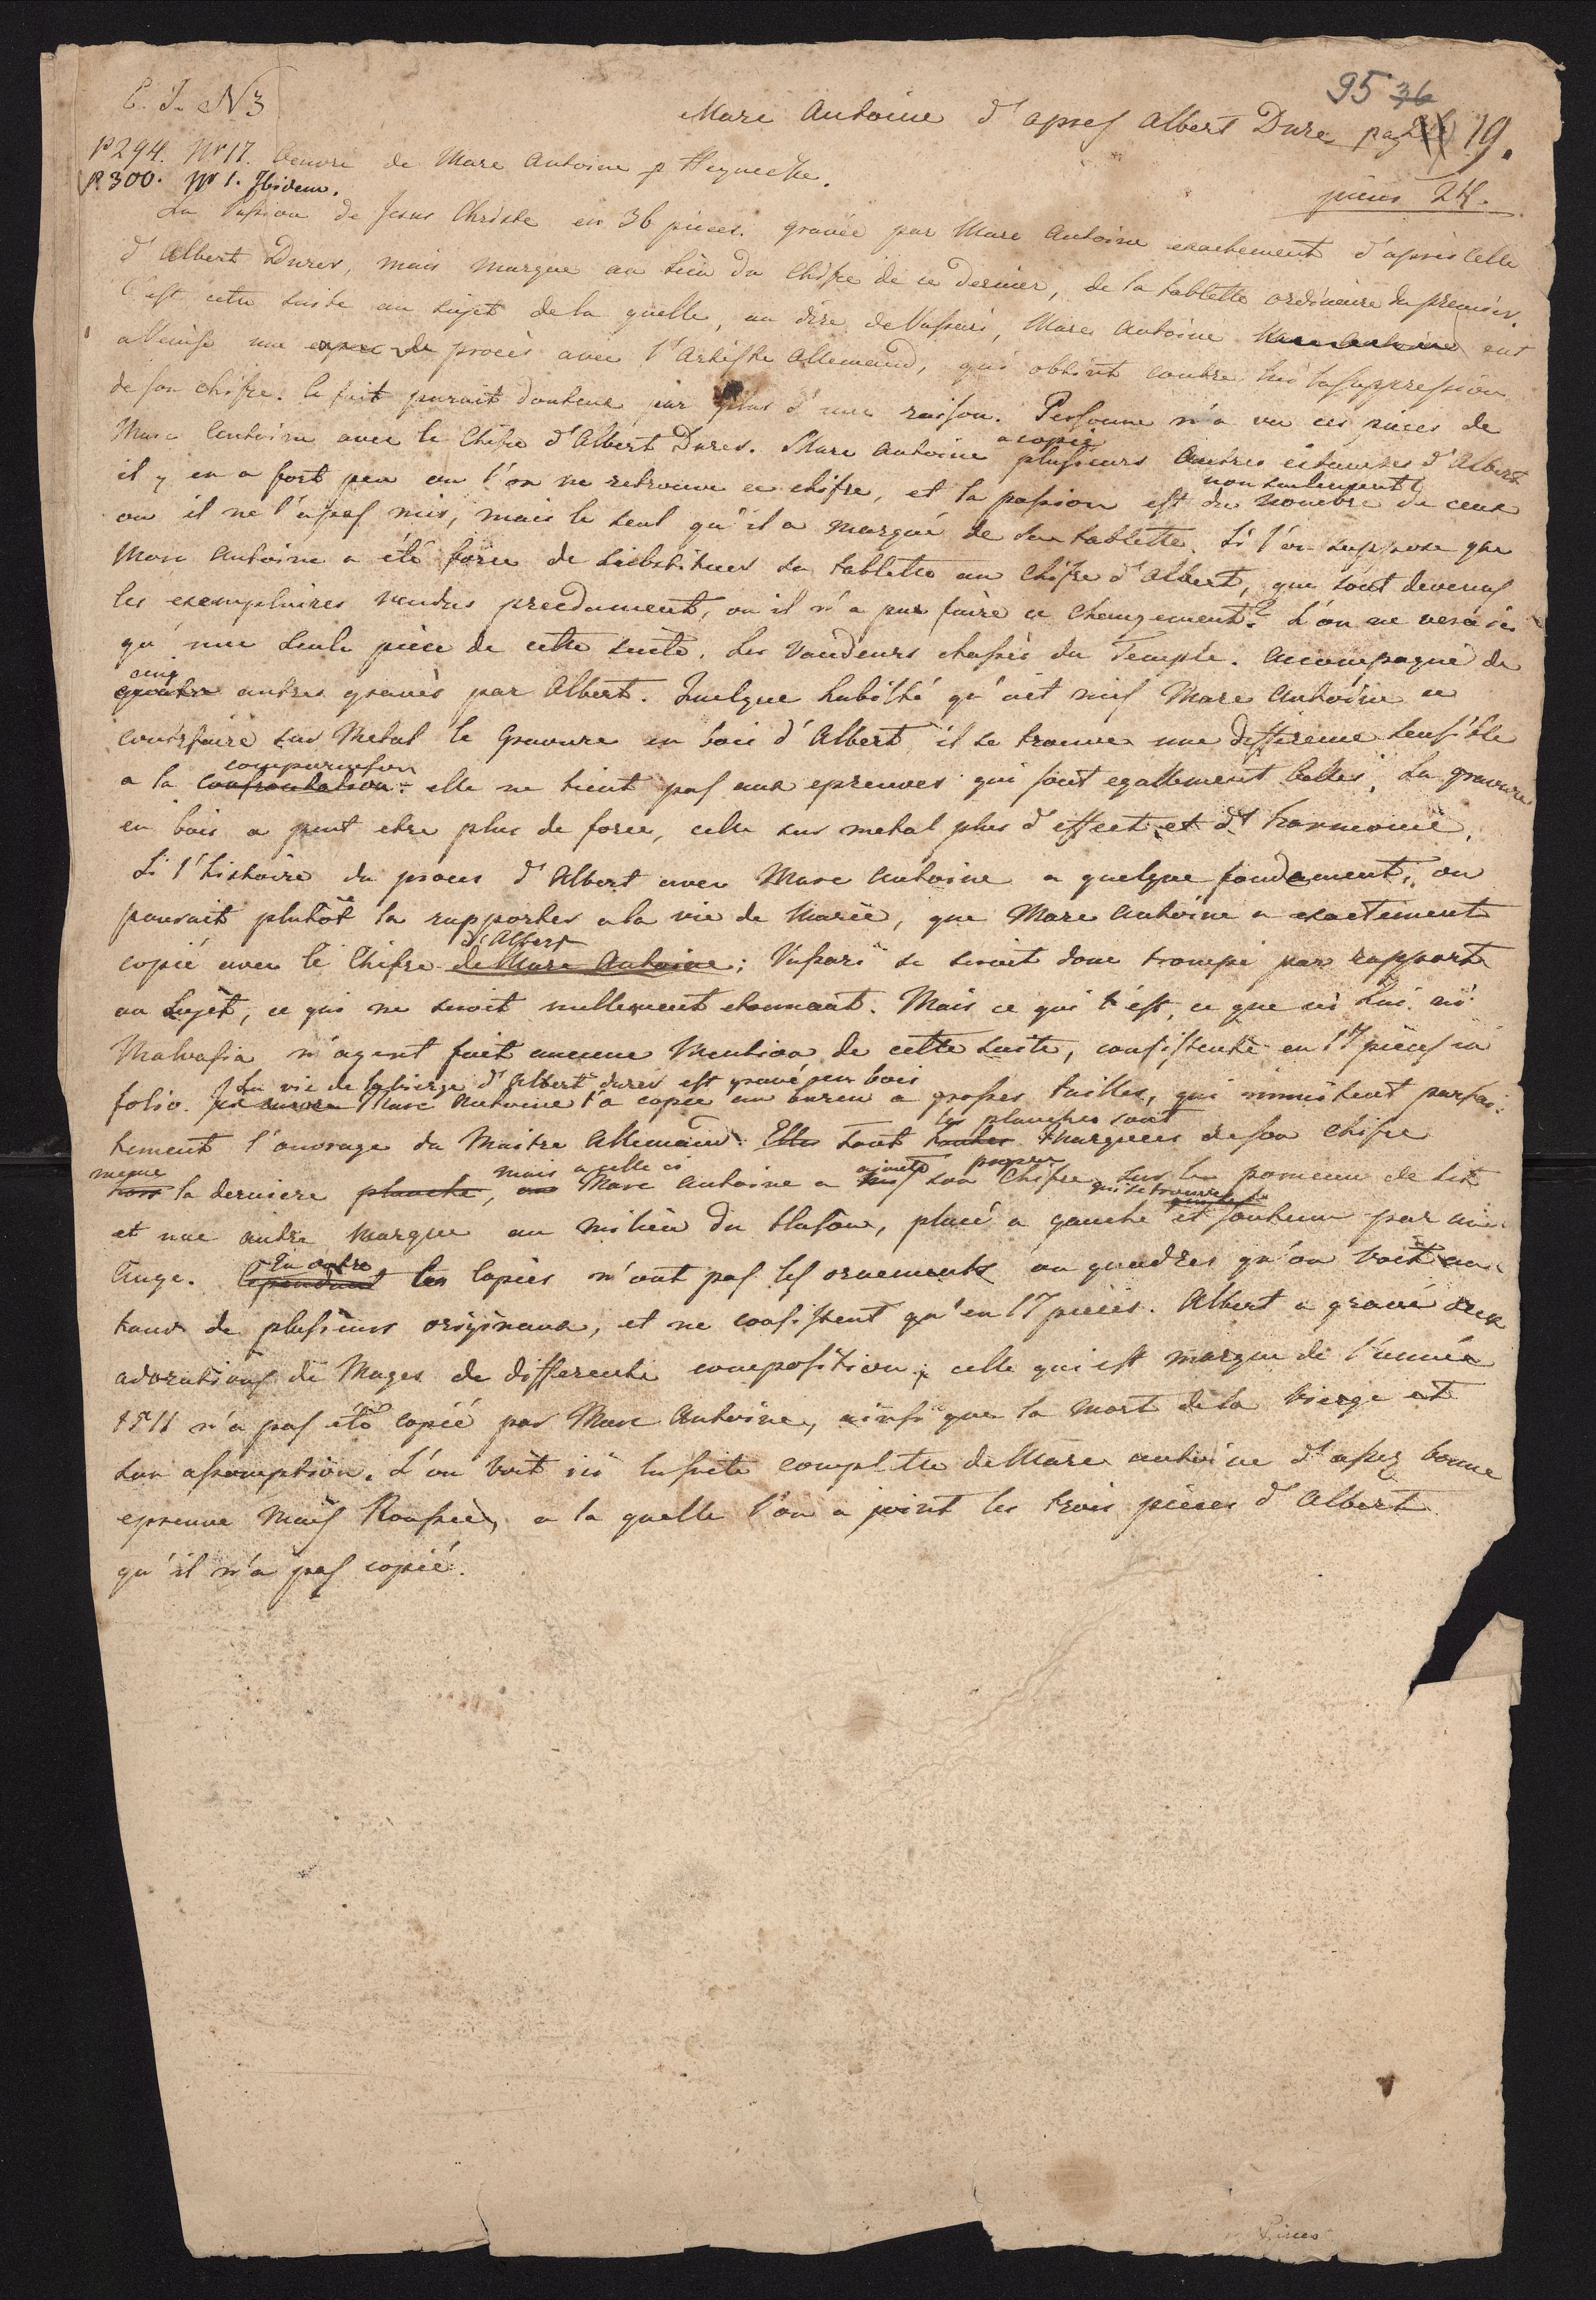 E. I. N 3
95 36
Marc Antoine d'apres Albert Dure pag 19.
p 294. No 17. Oeuvre de Marc Antoine p Heynecke.
p 300. No 1. Ibidem.
pieces 24.
La Passion de Jesus Christe en 36 pieces. gravée par Marc Antoine exactement d'après celle
d'Albert Durer, mais marque au lieu du Chifre de ce dernier, de la tablette ordinaire du premier.
C'est cette suite au sujet de la quelle, au dire de Vasari, Marc Antoine Marc Antoine eut
a Venise une espece de procès avec l'Artiste Allemand, qui obtint contre lui la suppression
de son chifre. le fait parait douteux par plus d'une raison. Personne n'a vu ces pieces de
Marc Antoine avec le Chifre d'Albert Durer. Marc Antoine a copié plusieurs autres estampes d'Albert
il y en a fort peu ou l'on ne retrouve ce chifre, et la passion est non seulement du nombre de ceux
ou il ne l'a pas mis, mais le seul qu'il a marqué de sa tablette. Si l'on suppose que
Marc Antoine a été force de substituer sa tablette au Chifre d'Albert, que sont devenus
les exemplaires vendus precedament, ou il n'a pas faire ce changement? L'on ne vera ici
qu'une seule pièce de cette suite. Les Vandeurs chassés du Temple. Accompagné de
cinq quatre autres gravés par Albert. Quelque habilité qu'ait mis Marc Antoine a
contrefaire sur Metal le Gravure en bois d'Albert il se trouve une differeme sensible
a la comparaison confrontation: elle ne tient pas aux epreuves qui sont egallement belles, La gravure
en bois a peut etre plus de force, celle sur metal plus d'effect et d'harmonie.
Si l'histoire du proces d'Albert avec Marc Antoine a quelque fondament, on
pourait plutôt la rapporter a la vie de Marie, que Marc Antoine a exactement
copié avec le Chifre d'Albert de Marc Antoine; Vasari se seroit donc trompé par rapport
au Sujet, ce qui ne seroit nullement etonnant. Mais ce qui l'est, ce que ni lui ni
Malvasia n'ayent fait aucune Mention de cette suite, consistente en 17 pièces in
folio. La vie de la vierge d'Albert durer est gravé en bois Marc Antoine l'a copié au burin a grosses tailles, qui immitent parfai-
tement l'ouvrage du Maitre Allemand. Elles sont toutes les planches sont marquees de son chifre
meme hors la derniere planche, mais a celle ci Marc Antoine a ajouté mis son propre Chifre sur le pomeau de lit
et une autre marque au milieu du blason, qui se trouve placé a gauche et soutenu par un
Ange. En outre Cependant les Copies n'ont pas les ornements ou quadres qu'on voit au-
tour de plusieurs originaux, et ne consistent qu'en 17 pieces. Albert a gravé deux
adorations de Mages de differente composition; celle qui est marque de l'année
1511 n'a pas été copié par Marc Antoine, ainsi que la mort de la Vierge et
son assomption. L'on voit ici la suite complette de Marc antoine d'assez bonne
epreuve mais Roussie, a la quelle l'on a joint les trois pièces d'Albert
qu'il n'a pas copié.